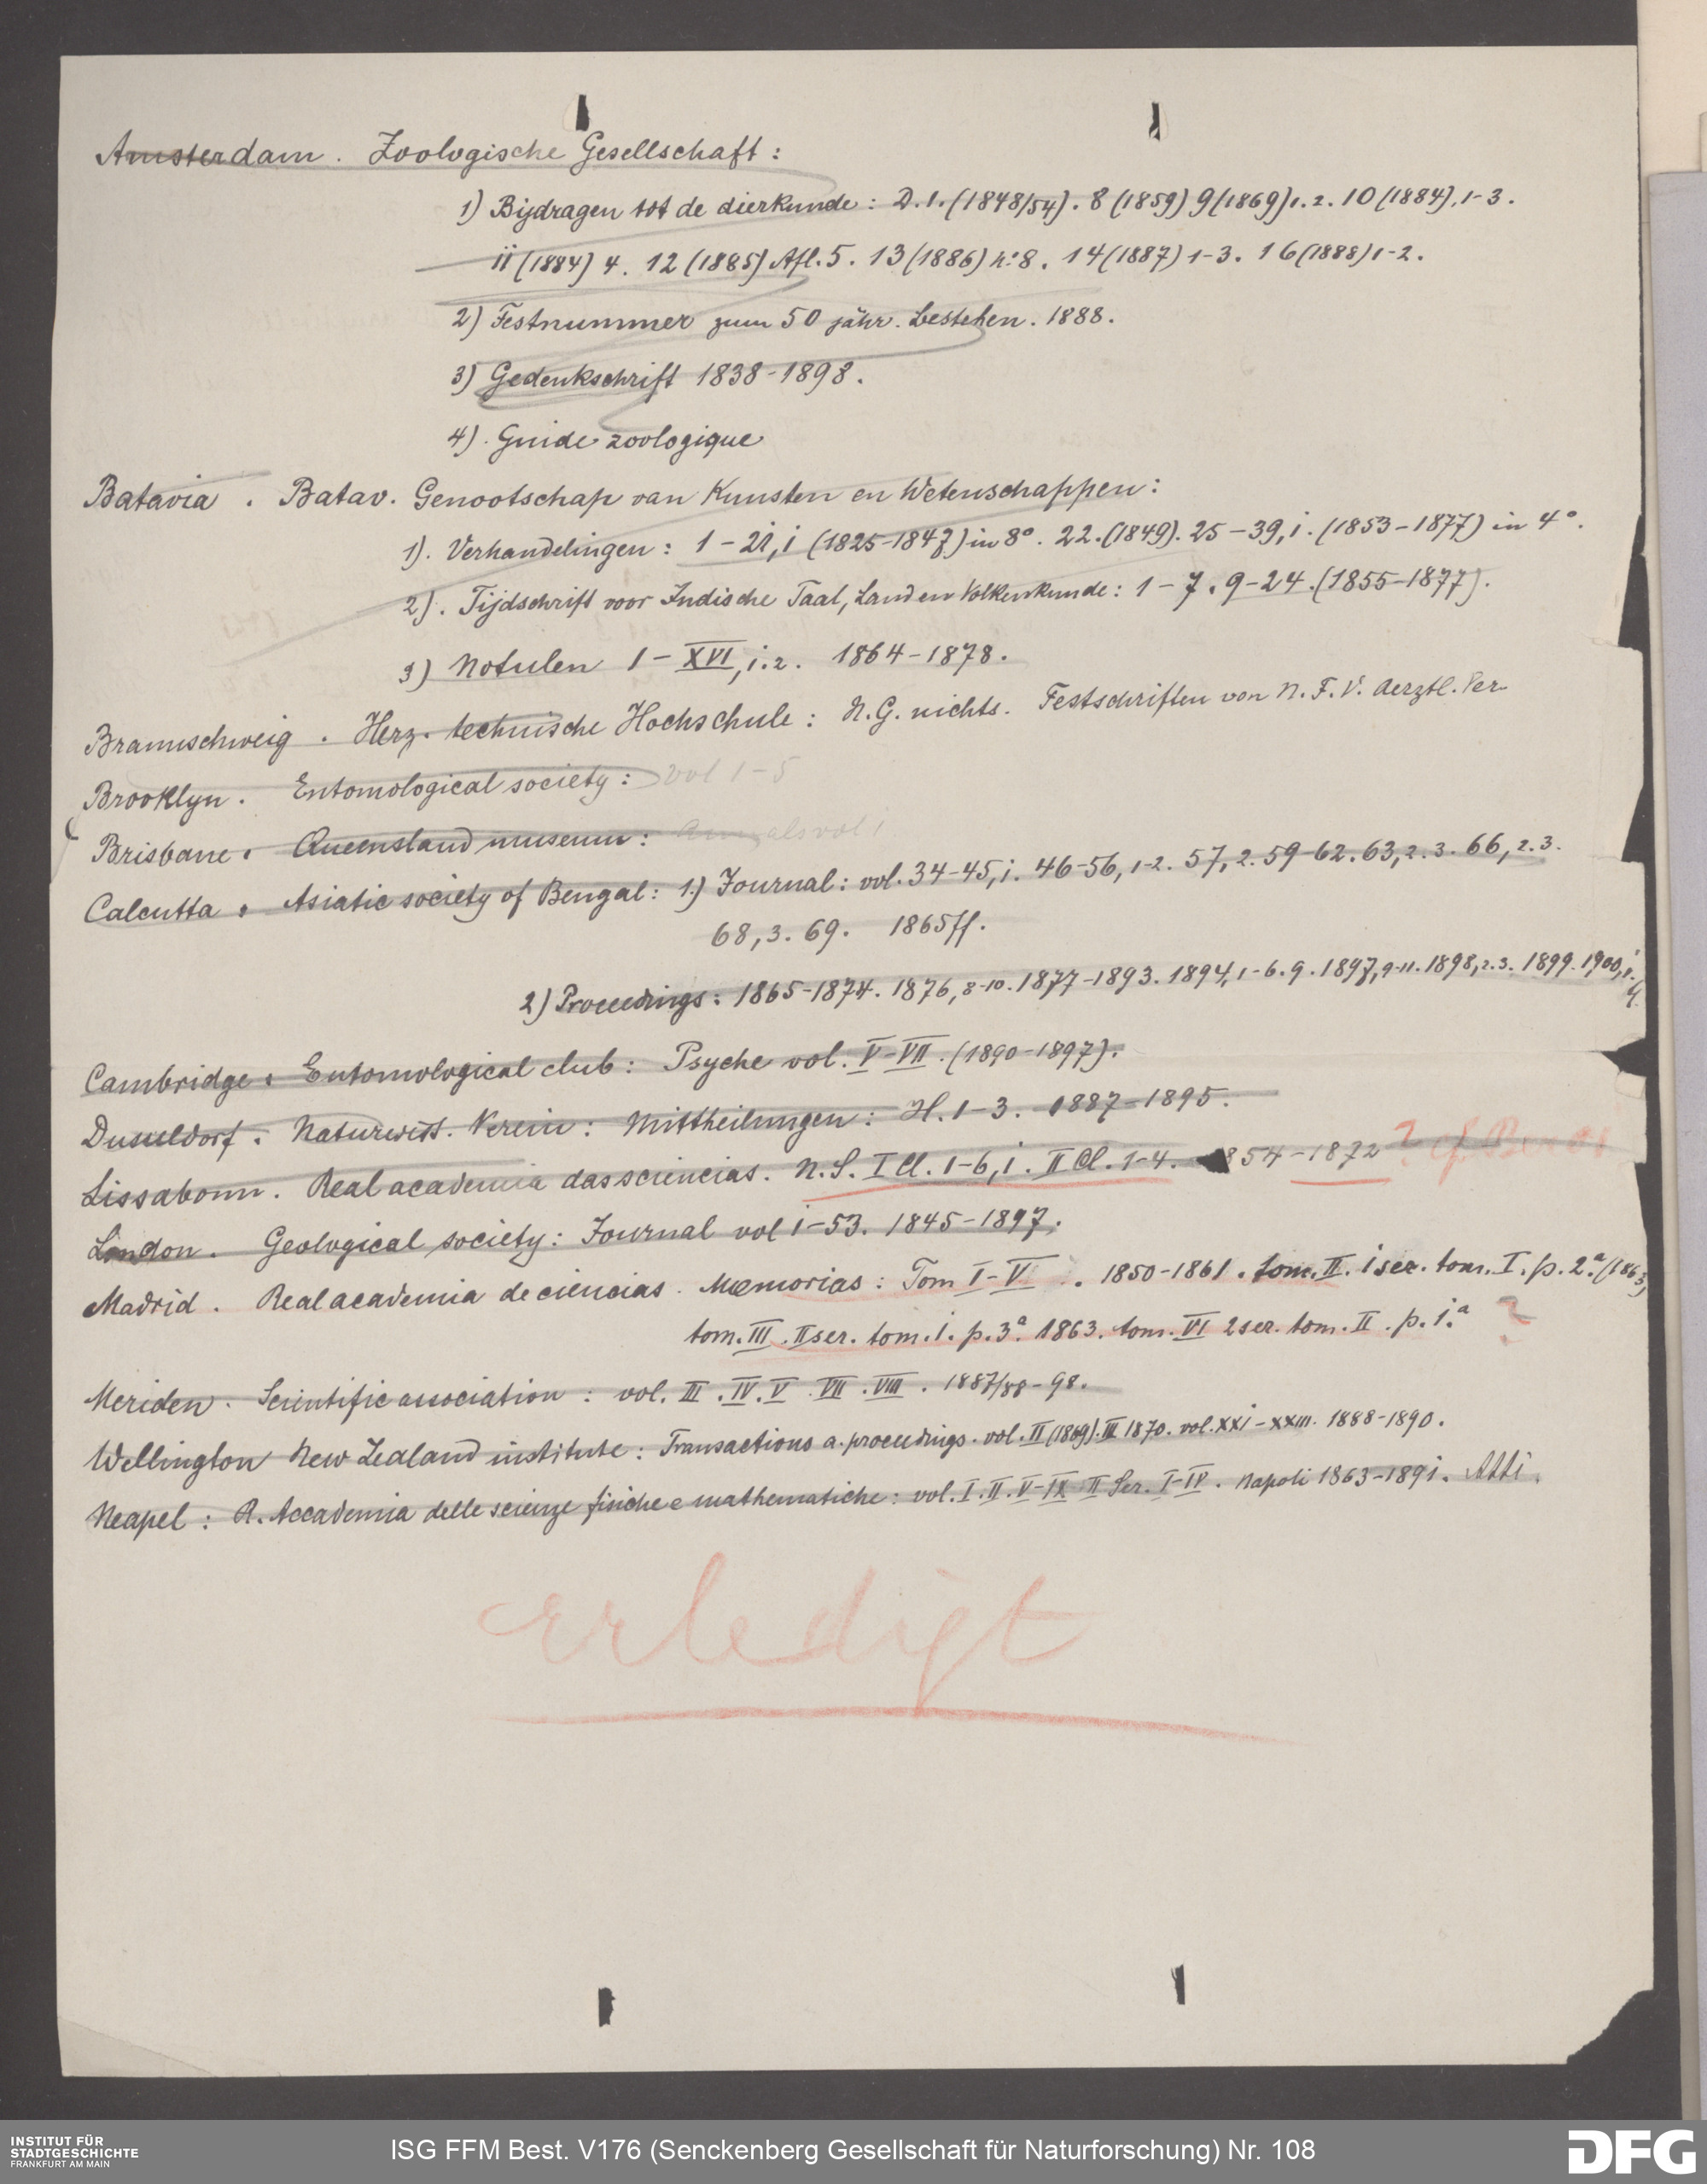 Amsterdam. Zoologische Gesellschaft:
1) Bijdragen tot de dierkunde: D.1.(1848/54). 8 (1859) 9(1869)1.2. 10 (1884), 1-3.
ii (1884) 4. 12 (1885) Afl.5. 13 (1886) n:8. 14 (1887) 1-3. 16 (1888) 1-2.
2) Festnummer zum 50 jähr. Bestehen. 1888.
3) Gedenkschrift 1838-1898.
4). Guide zoologique
Batavia. Batav. Genootschap van Kunsten en Wetenschappen:
1). Verhandelingen: 1-21,i (1825-1847) in 8°. 22.(1849). 25-39,i. (1853-1877) in 4°.
2). Tijdschrift voor Indische Taal, Land en Volkenkunde: 1-7. 9-24. (1855-1877).
3) Notulen 1-XVI, i.2. 1864-1878.
Braunschweig. Herz. technische Hochschule: N.G. nichts. Festschriften von N.F.V. Aerztl. Ver.
Brooklyn. Entomological society: vol 1-5
Brisbane. Queensland museum: Annals vol 1
Calcutta. Asiatic society of Bengal: 1.) Journal: vol. 34-45,i. 46-56, 1-2. 57, 2. 59-62. 63, 2.3. 66, 2.3.
68, 3. 69. 1865ff.
2) Proceedings: 1865-1874. 1876, 8-10. 1877-1893. 1894, 1-6. 9. 1897, 9-11. 1898, 2.3. 1899. 1900, 1.
4.
Cambridge. Entomological club: Psyche vol. V-VII. (1890-1897).
Dusseldorf. Naturwiss. Verein: Mittheilungen: H. 1-3. 1887-1895.
Lissabonn. Real academia das sciencias. N.S. I Cl. 1-6, i. II Cl. 1-4. 1854-1872 ? cf.
London. Geological society: Journal vol i-53. 1845-1897.
Madrid. Real academia de ciencias. Memorias: Tom I-V. 1850-1861. tom. II. i ser. tom. I. p. 2.ª (1863,
tom. III. II ser. tom. i. p. 3ª. 1863. tom. VI 2 ser. tom. II. p. i.ª ?
Meriden. Scientific association: vol. III. IV. V. VII. VIII. 1887/88-98.
Wellington New Zealand institute: Transactions a. proceedings. vol. II (1869). III 1870. vol. XXI-XXIII. 1888-1890.
Neapel: R. Accademia delle scienze fisiche e mathematiche: vol. I. II. V-IX II Ser. I-IV. Napoli 1863-1891. Atti.
erledigt
INSTITUT FÜR
STADTGESCHICHTE
FRANKFURT AM MAIN
ISG FFM Best. V176 (Senckenberg Gesellschaft für Naturforschung) Nr. 108
DFG